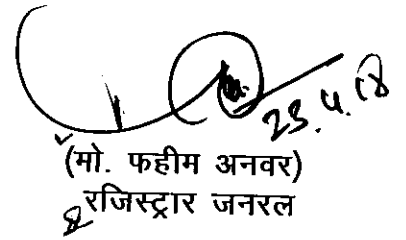 23.4.18
(मो. फहीम अनवर)
रजिस्ट्रार जनरल